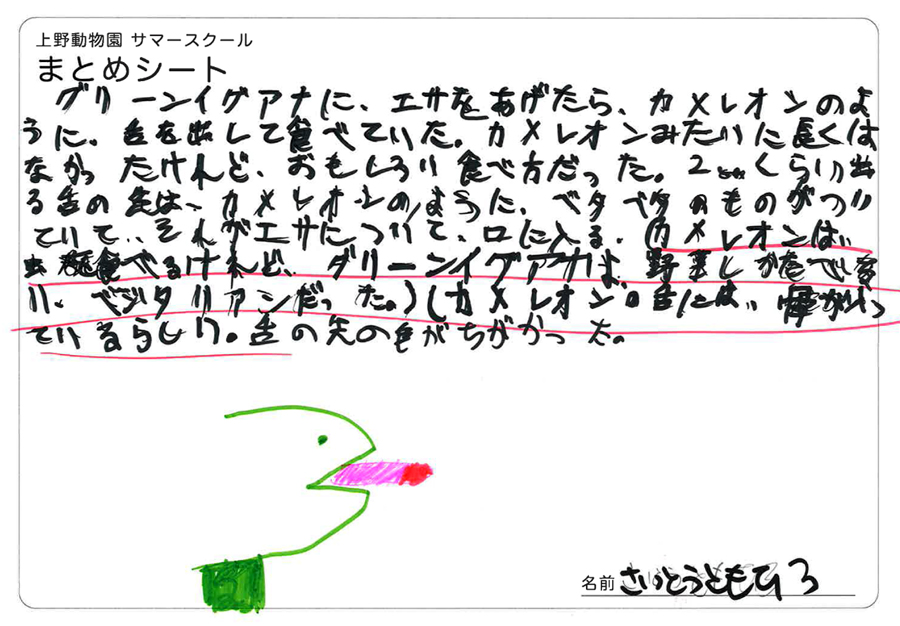 上野動物園 サマースクール
まとめシート
グリーンイグアナに、エサをあげたら、カメレオンのよ
うに、舌を出して食べていた。カメレオンみたいに長くは
なかったけれど、おもしろい食べ方だった。2cmくらい出
る舌の先は、カメレオンのように、ベタベタのものがつい
ていて、それがエサについて、口に入る。(カメレオンは、
虫食べるけれど、グリーンイグアナは、野菜しか食べない
ベジタリアンだった。)(カメレオンの舌には、骨が入っ
ているらしい。舌の先の色がちがかった。
名前 さいとうともひろ